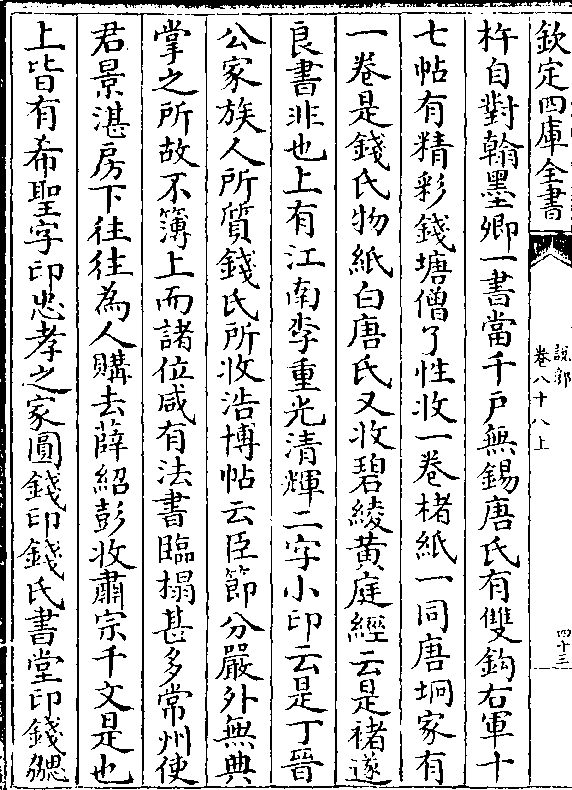 欽定四庫全書
說郛
卷八十八上
四十三
杵自對翰墨卿一書當千戶無錫唐氏有雙鈎右軍十
七帖有精彩錢塘僧了性收一卷楮紙一同唐坰家有
一卷是錢氏物紙白唐氏又收碧綾黃庭經云是褚遂
良書非也上有江南李重光清輝二字小印云是丁晉
公家族人所質錢氏所收浩博帖云臣節分嚴外無典
掌之所故不簿上而諸位咸有法書臨搨甚多常州使
君景湛房下往往為人購去薛紹彭收肅宗千文是也
上皆有希聖字印忠孝之家圓錢印錢氏書堂印錢勰